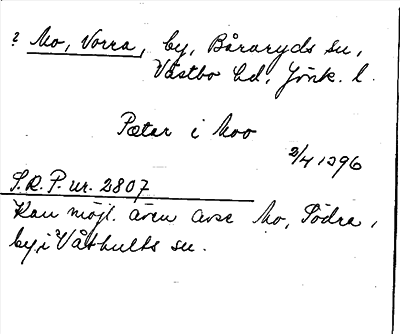 ? Mo, Norra, by, Båraryds sn,
Västbo hd, Jönk. l.
Pætar i Moo
2/4 1396
S.R.P. nr. 2807
Kan möjl. även avse Mo, Södra,
by i Våthults sn.